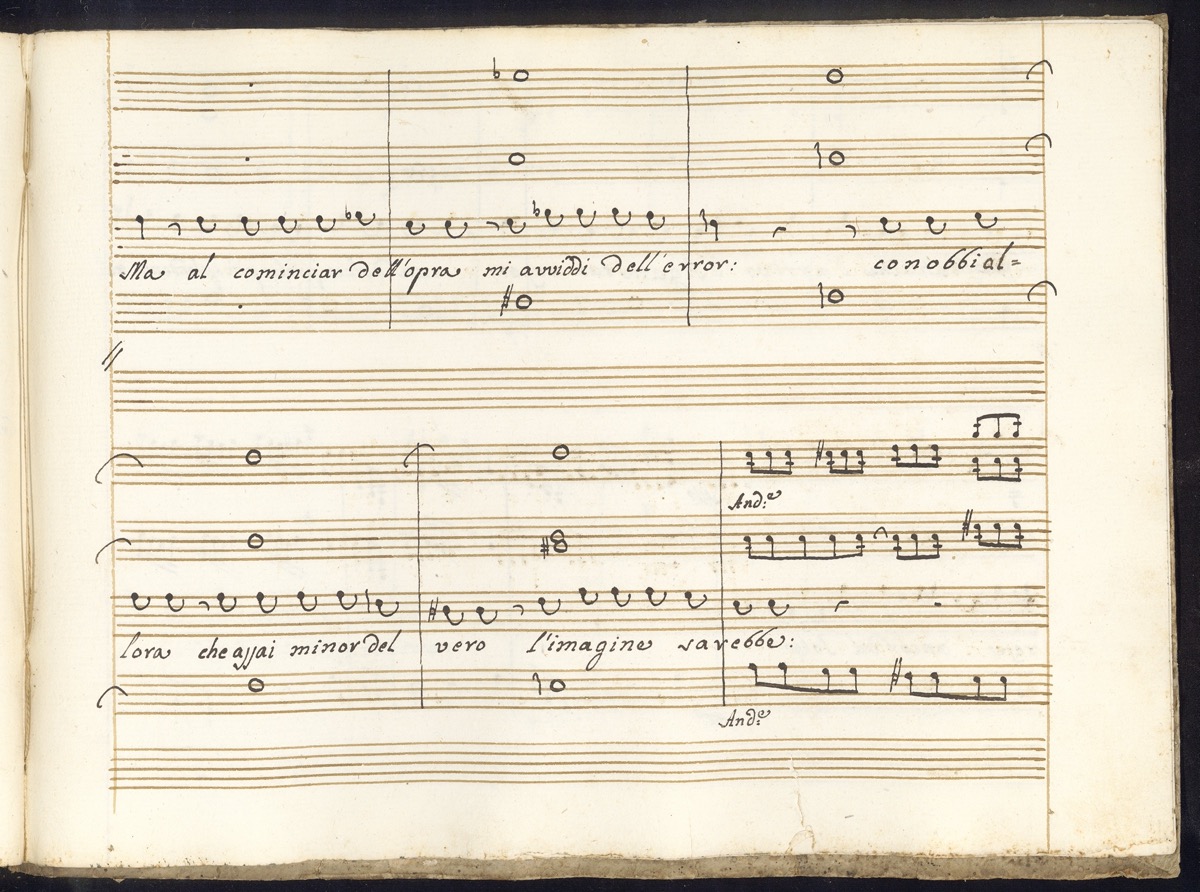 Ma al cominciar dell'opra mi avviddi dell'error: conobbi al=
And.e
lora che assai minor del vero l'imagine sarebbe:
And.e